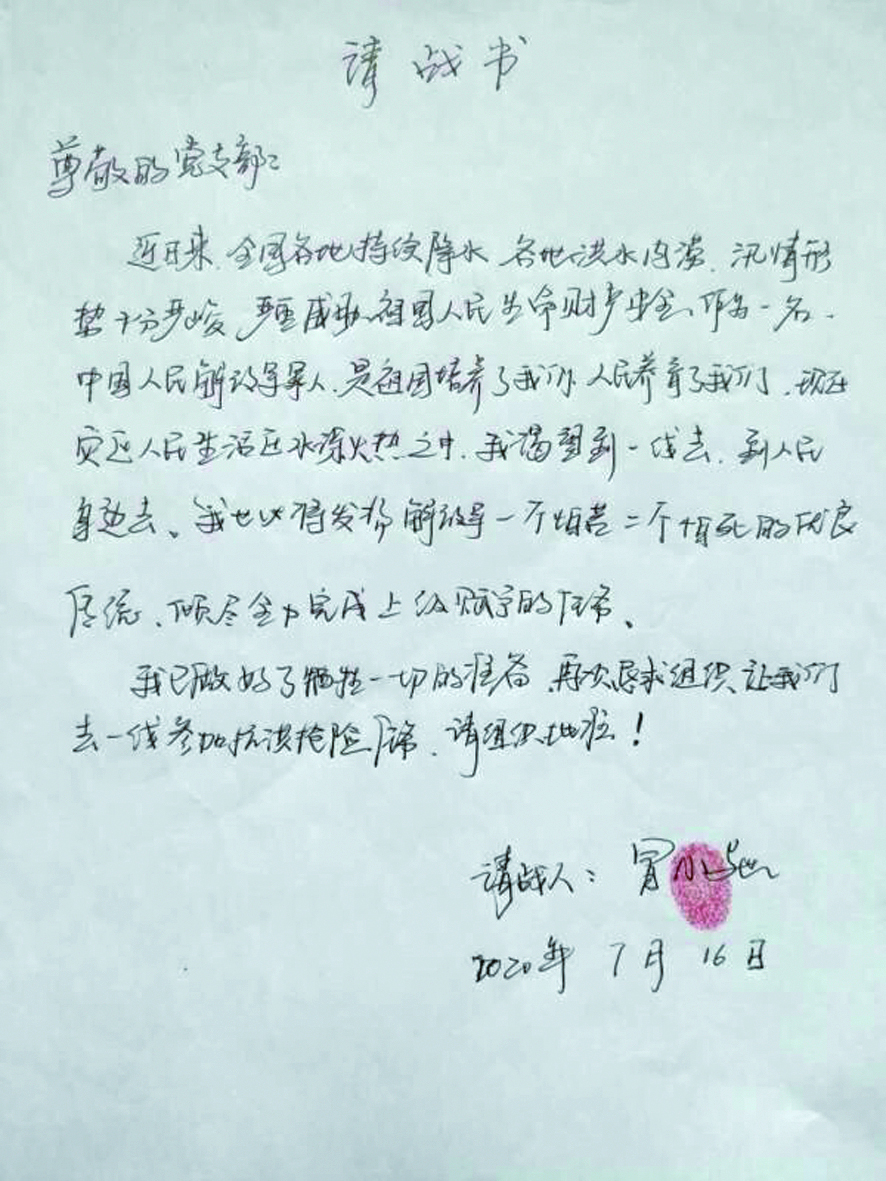 请战书
尊敬的党支部：
近日来，全国各地持续降水，各地洪水内涝，汛情形
势十分严峻，严重威胁祖国人民生命财产安全，作为一名
中国人民解放军军人，是祖国培养了我们，人民养育了我们，现在
灾区人民生活在水深火热之中，我渴望到一线去，到人民
身边去。我也必将发扬解放军一不怕苦二不怕死的优良
传统，倾尽全力完成上级赋予的任务。
我已做好了牺牲一切的准备，再次恳求组织，让我们
去一线参加抗洪抢险任务，请组织批准！
请战人：冒小
2020年 7月 16日